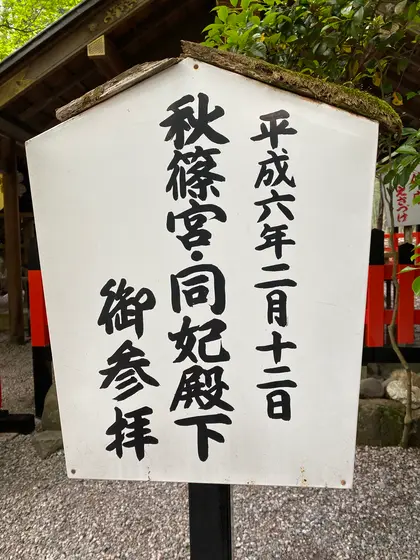 平成六年二月十二日
秋篠宮・同妃殿下
御参拝